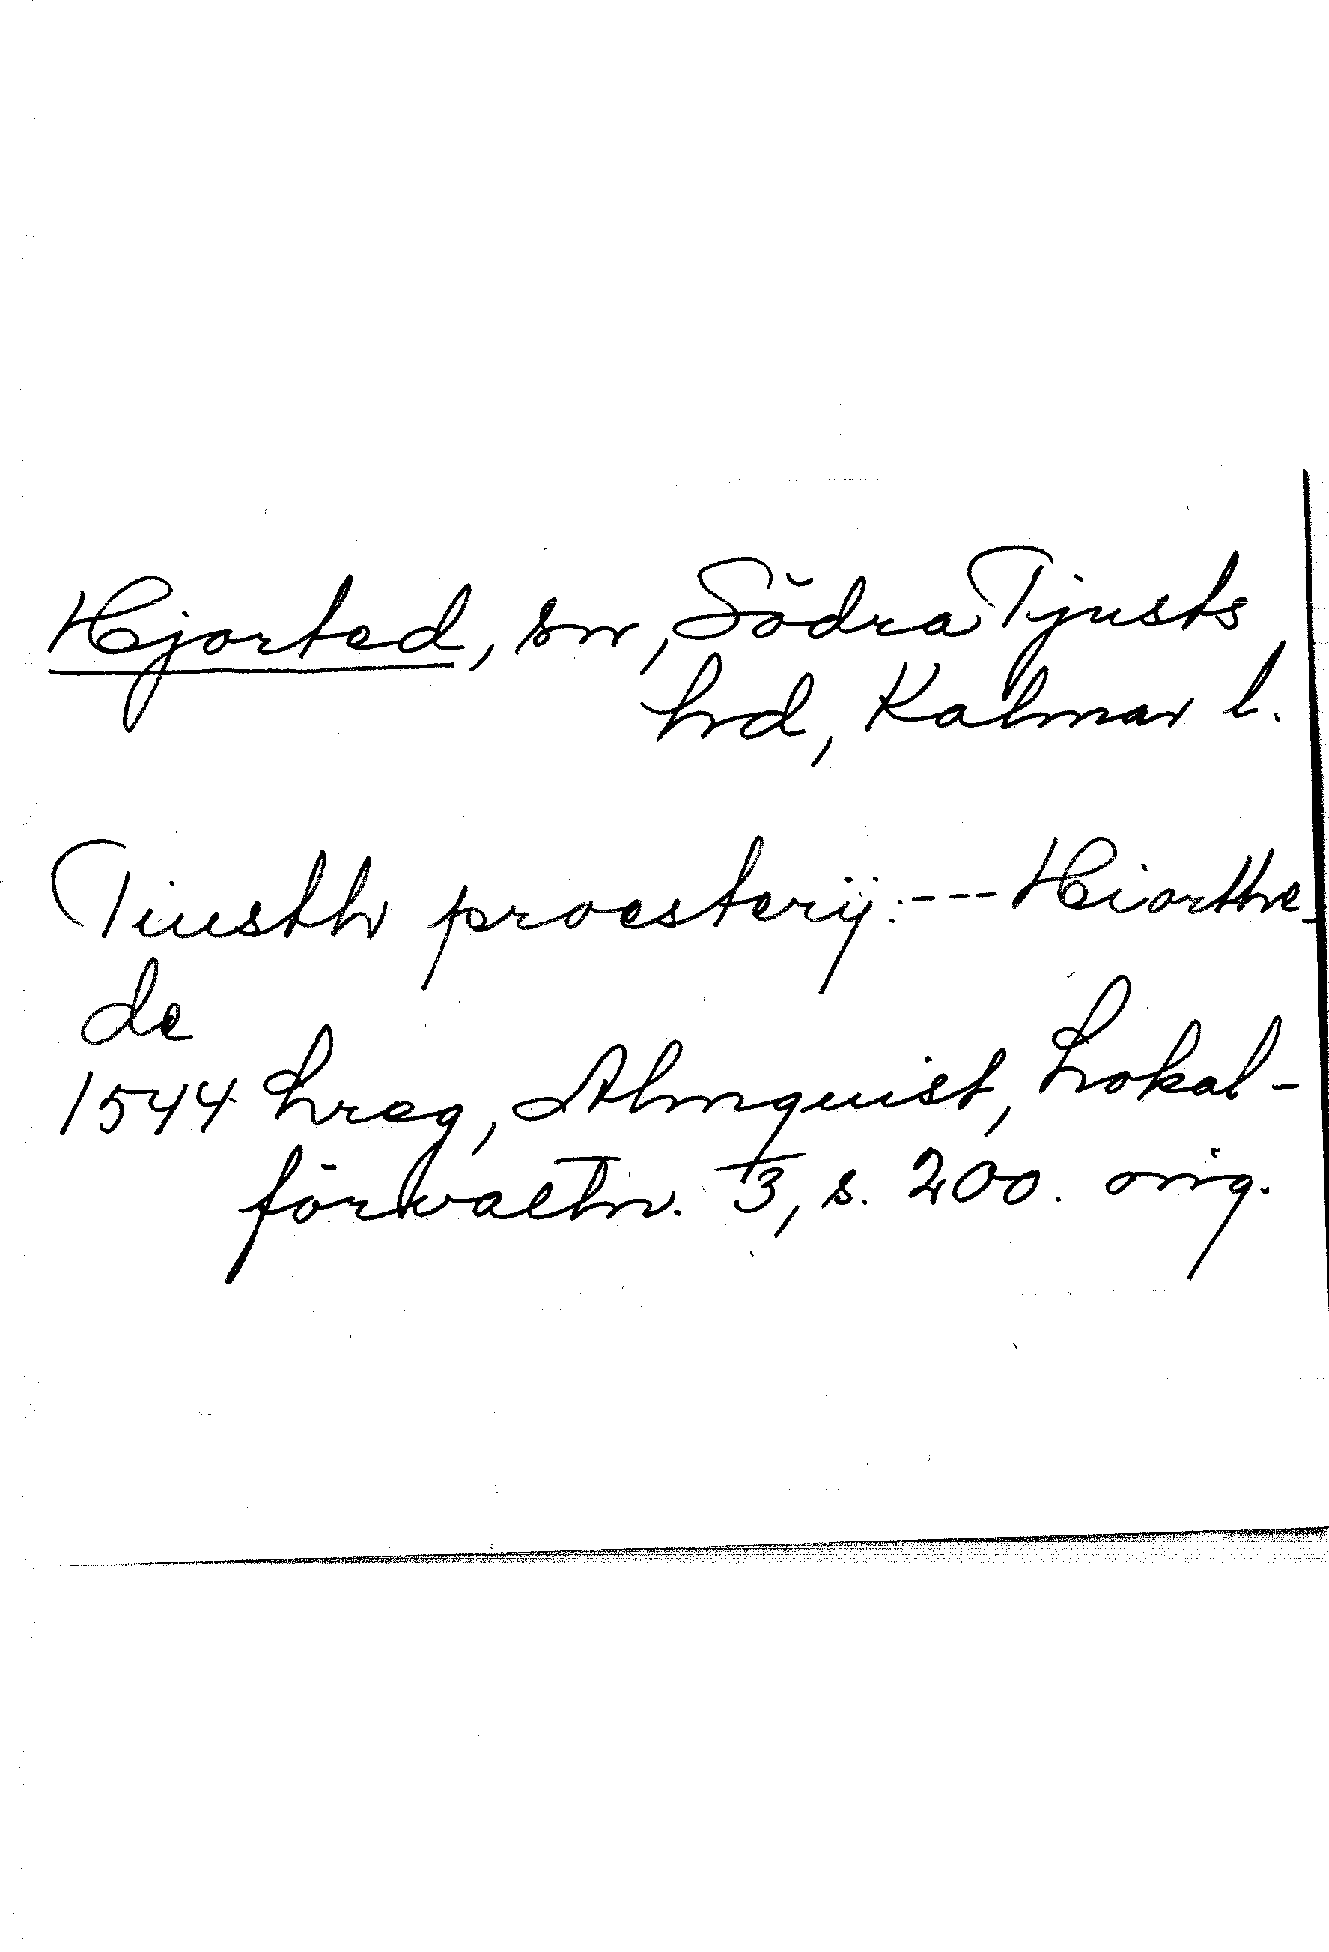 Hjorted, sn, Södra Tjusts
hrd, Kalmar l.
Tiusth proesterij: --- Hiorthe-
de
1544 Lreg, Almquist, Lokal-
förvaltn. 3, s. 200. orig.